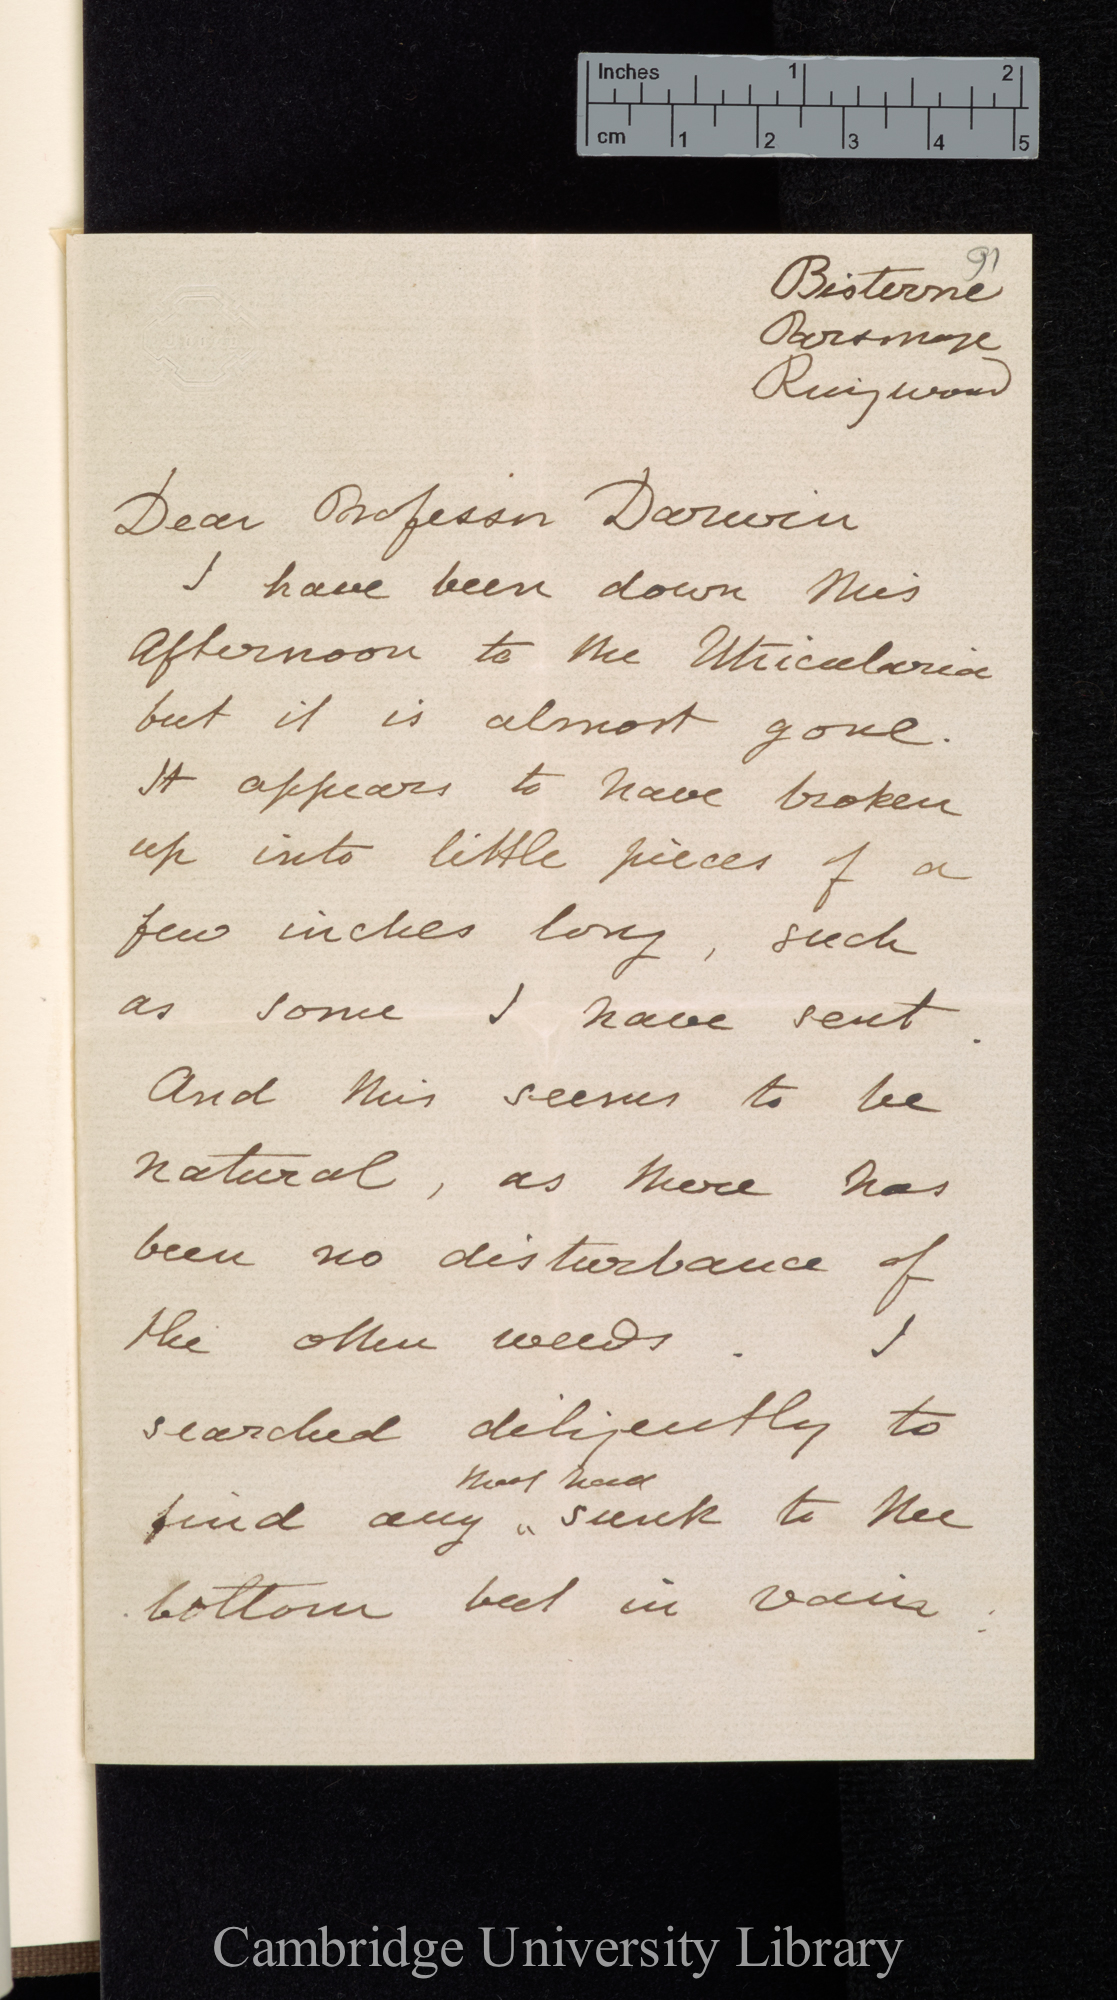 Inches 1 2
cm 1 2 3 4 5
91
Bisterne
Parsonage
Ringwood
Dear Professor Darwin
I have been down this
afternoon to the Utricularia
but it is almost gone.
It appears to have broken
up into little pieces of a
few inches long, such
as some I have sent.
And this seems to be
natural, as there has
been no disturbance of
the other weeds. I
searched diligently to
that had
find any " sunk to the
bottom but in vain.
Cambridge University Library